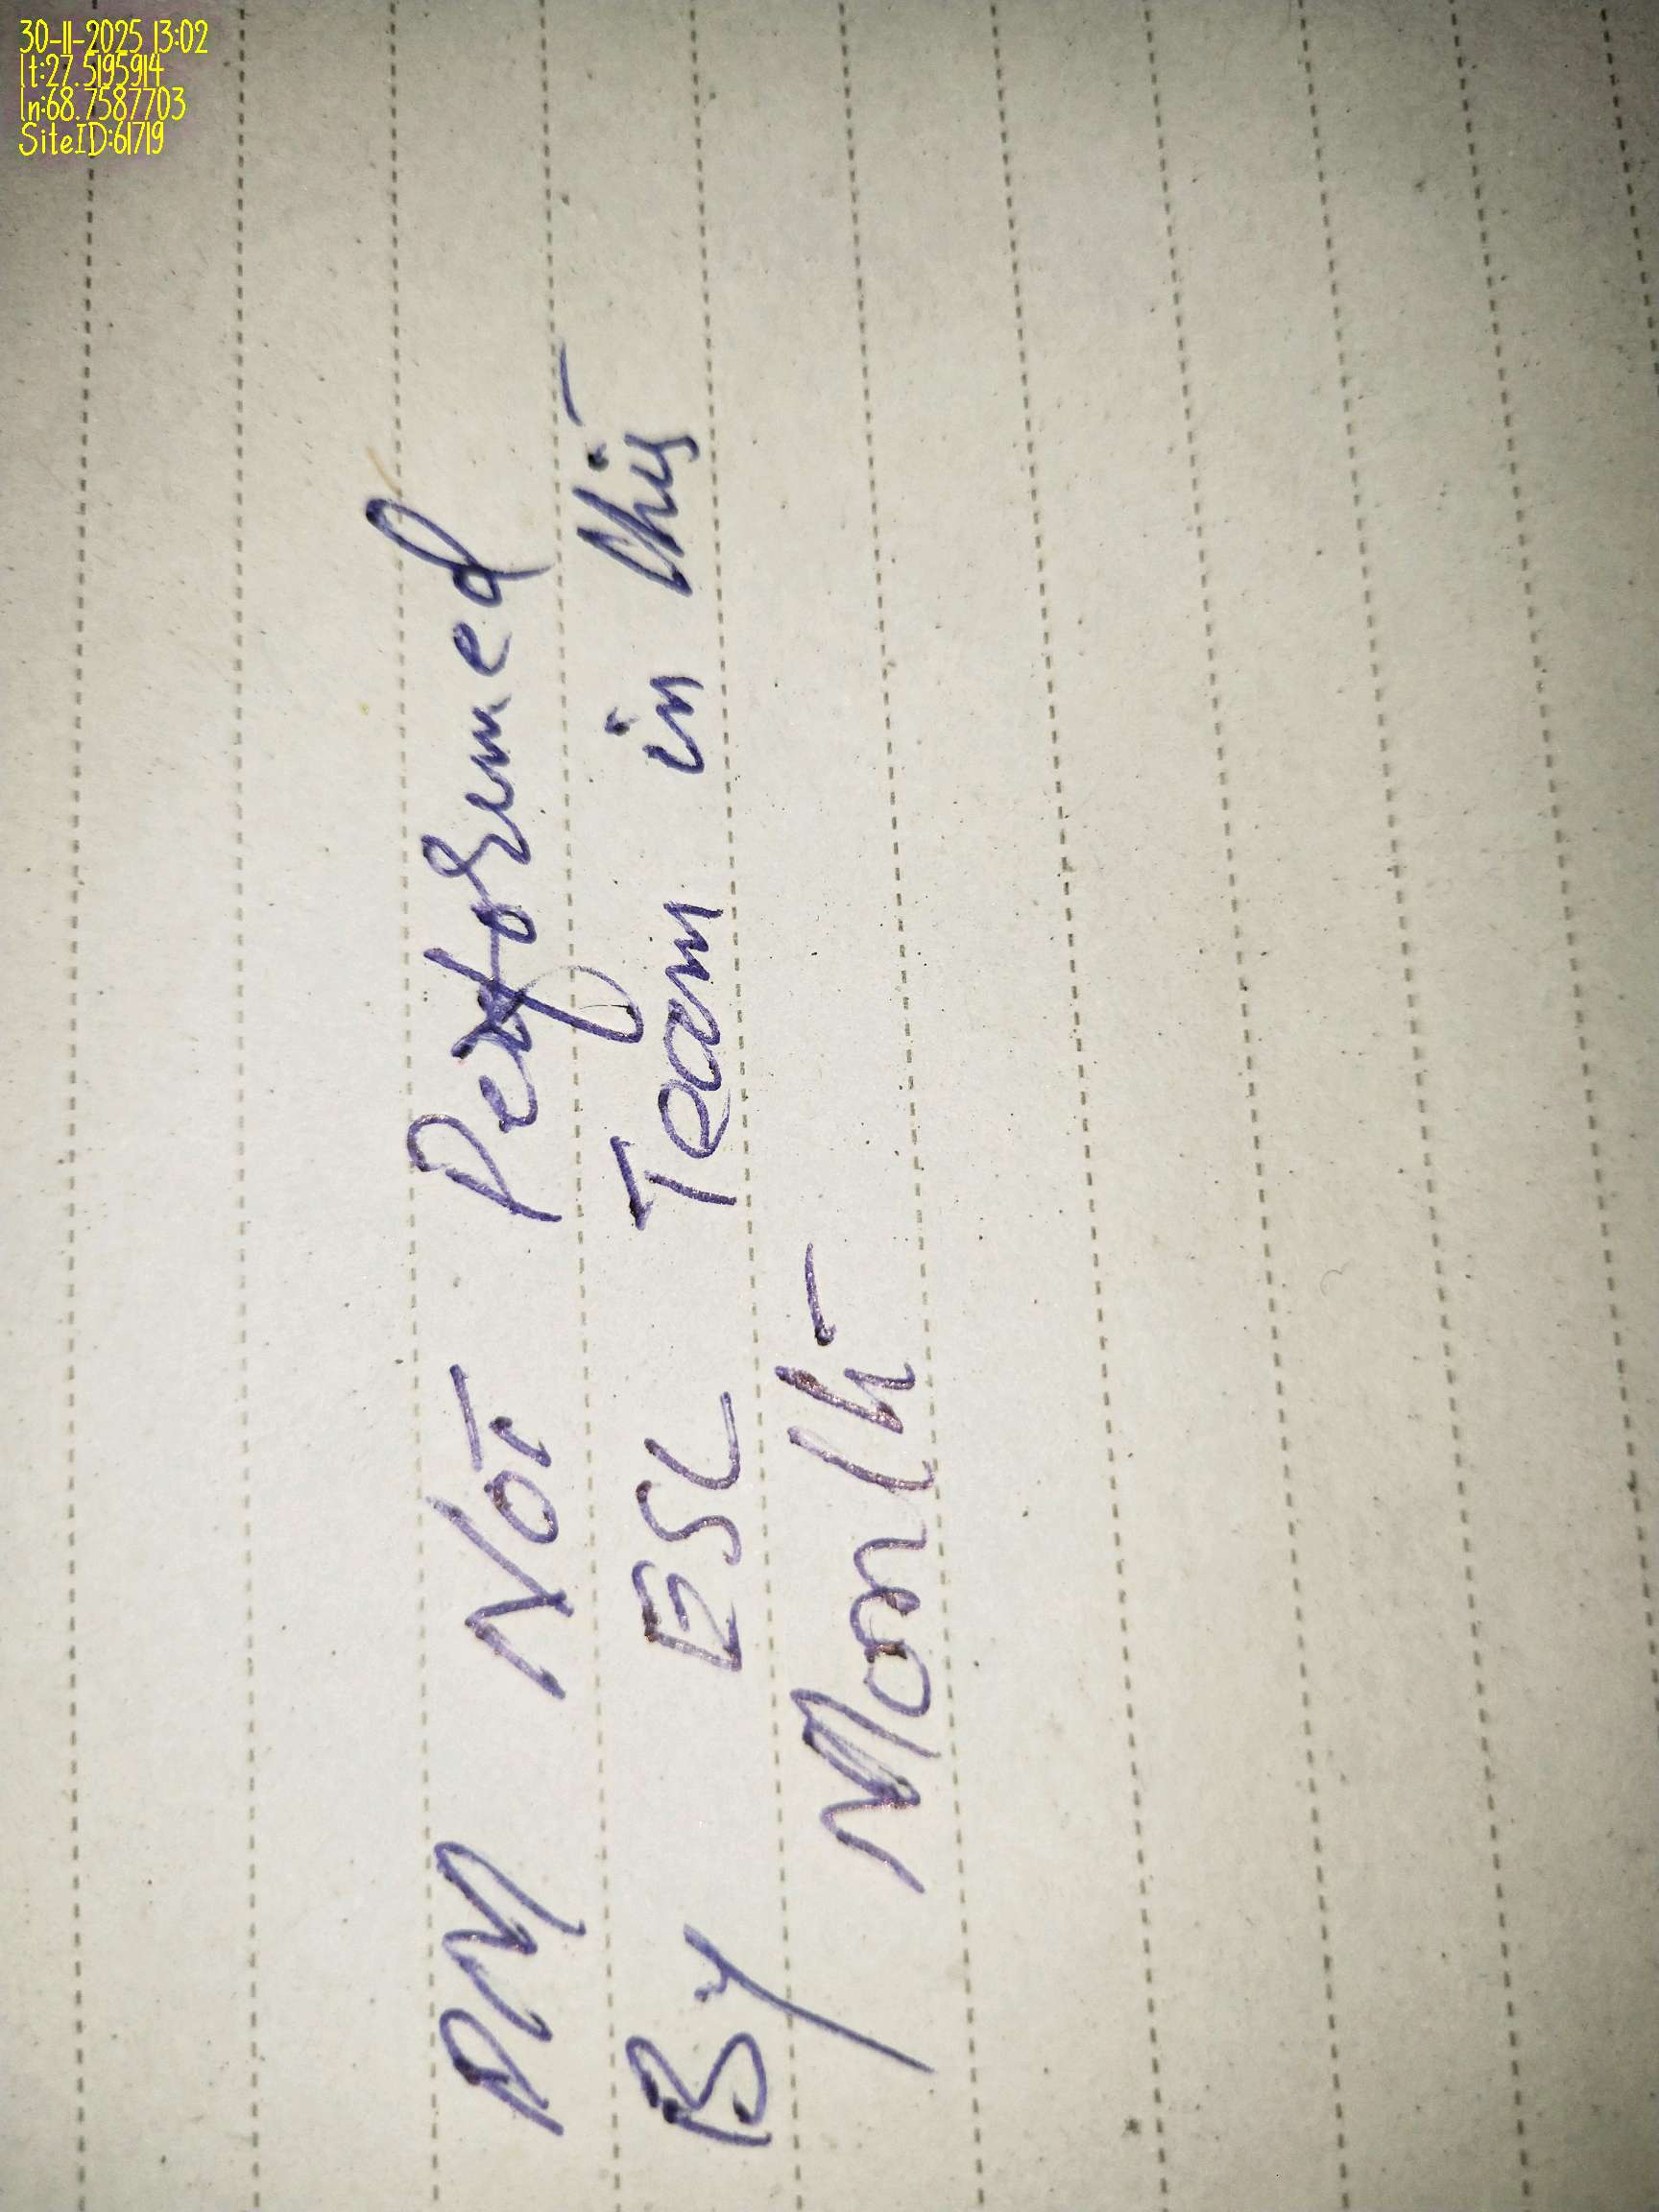 30-11-2025 13:02
lt:27.5195914
ln:68.7587703
SiteID:61719
PM Not Performed
By ESL Team in this
Month